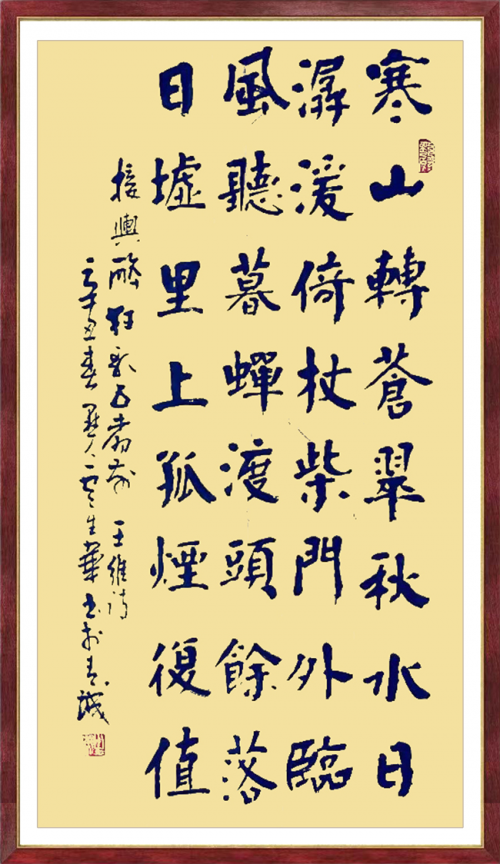 寒山轉蒼翠秋水日
潺湲倚杖柴門外臨
風聽暮蟬渡頭餘落
日墟里上孤煙復值
接輿醉狂歌五柳前 王維詩
辛丑春 生華書於